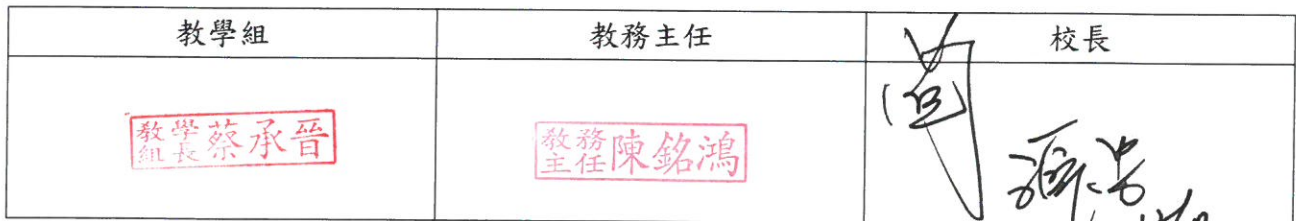 教學組 教務主任 校長
教學組長 蔡承晉 教務主任 陳銘鴻